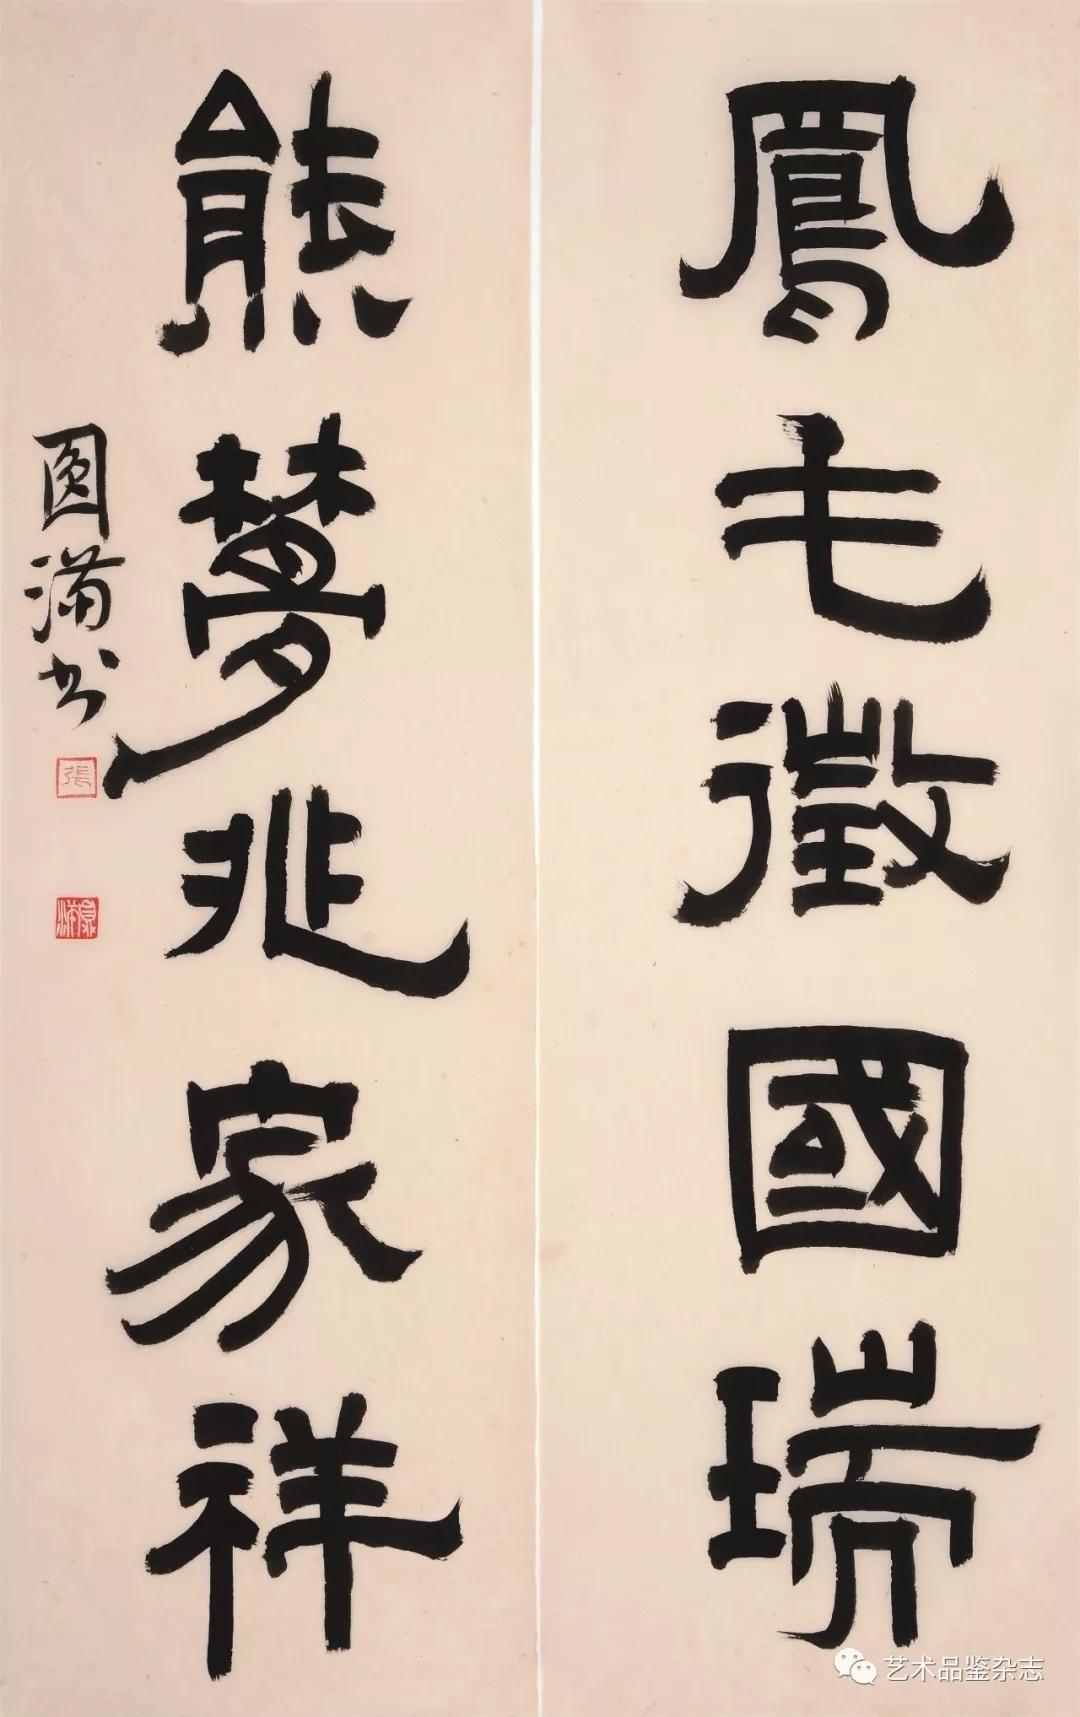 鳳毛徵國瑞
熊夢兆家祥
圓滿书
張
艺术品鉴杂志